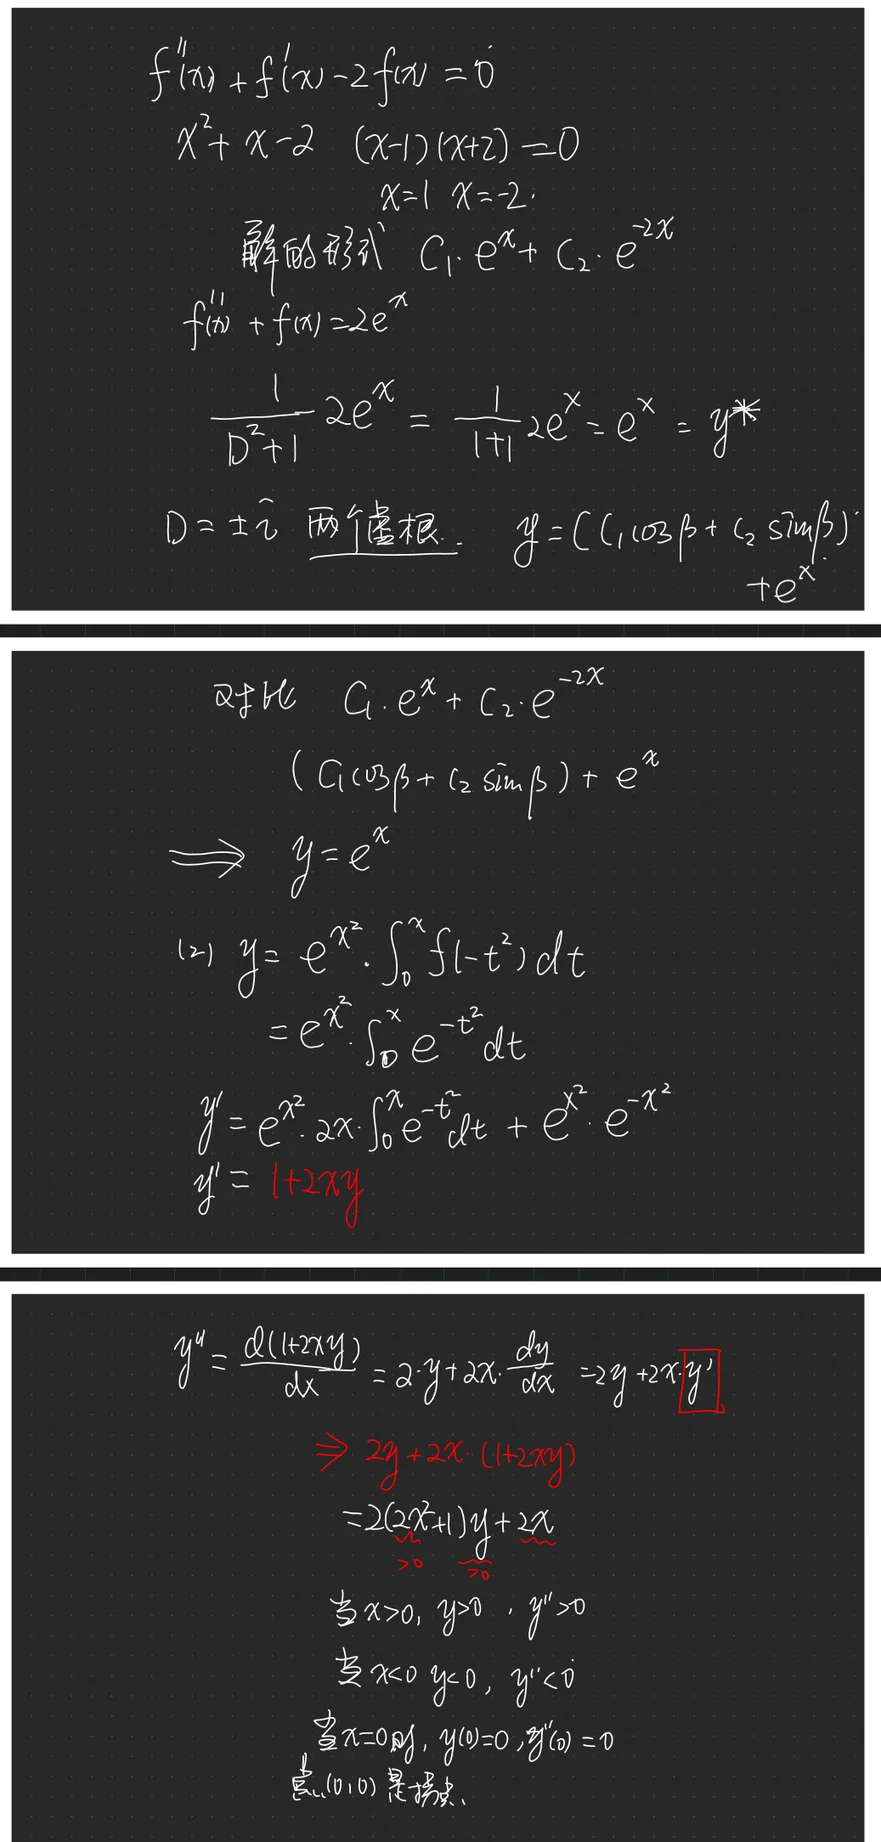 f''(x) + f'(x) - 2f(x) = 0
x² + x - 2 (x-1)(x+2) = 0
x=1 x=-2.
解的形式 C₁·eˣ + C₂·e⁻²ˣ
f''(x) + f(x) = 2eˣ
1/(D²+1) 2eˣ = 1/(1+1) 2eˣ = eˣ = y*
D = ±i 两个虚根. y = (C₁cosβ + C₂sinβ)
+eˣ
对比 C₁·eˣ + C₂·e⁻²ˣ
(C₁cosβ + C₂sinβ) + eˣ
⟹ y = eˣ
(2) y = e^(x²)·∫₀ˣ f(-t²)dt
= e^(x²)·∫₀ˣ e^(-t²)dt
y' = e^(x²)·2x·∫₀ˣ e^(-t²)dt + e^(x²)·e^(-x²)
y' = 1+2xy
y'' = d(1+2xy)/dx = 2·y+2x·dy/dx = 2y+2x·y'
⇒ 2y+2x·(1+2xy)
=2(2x²+1)y+2x
>0 >0
当x>0, y>0, y''>0
当x<0 y<0, y''<0
当x=0时, y(0)=0, y''(0)=0
点(0,0)是拐点.